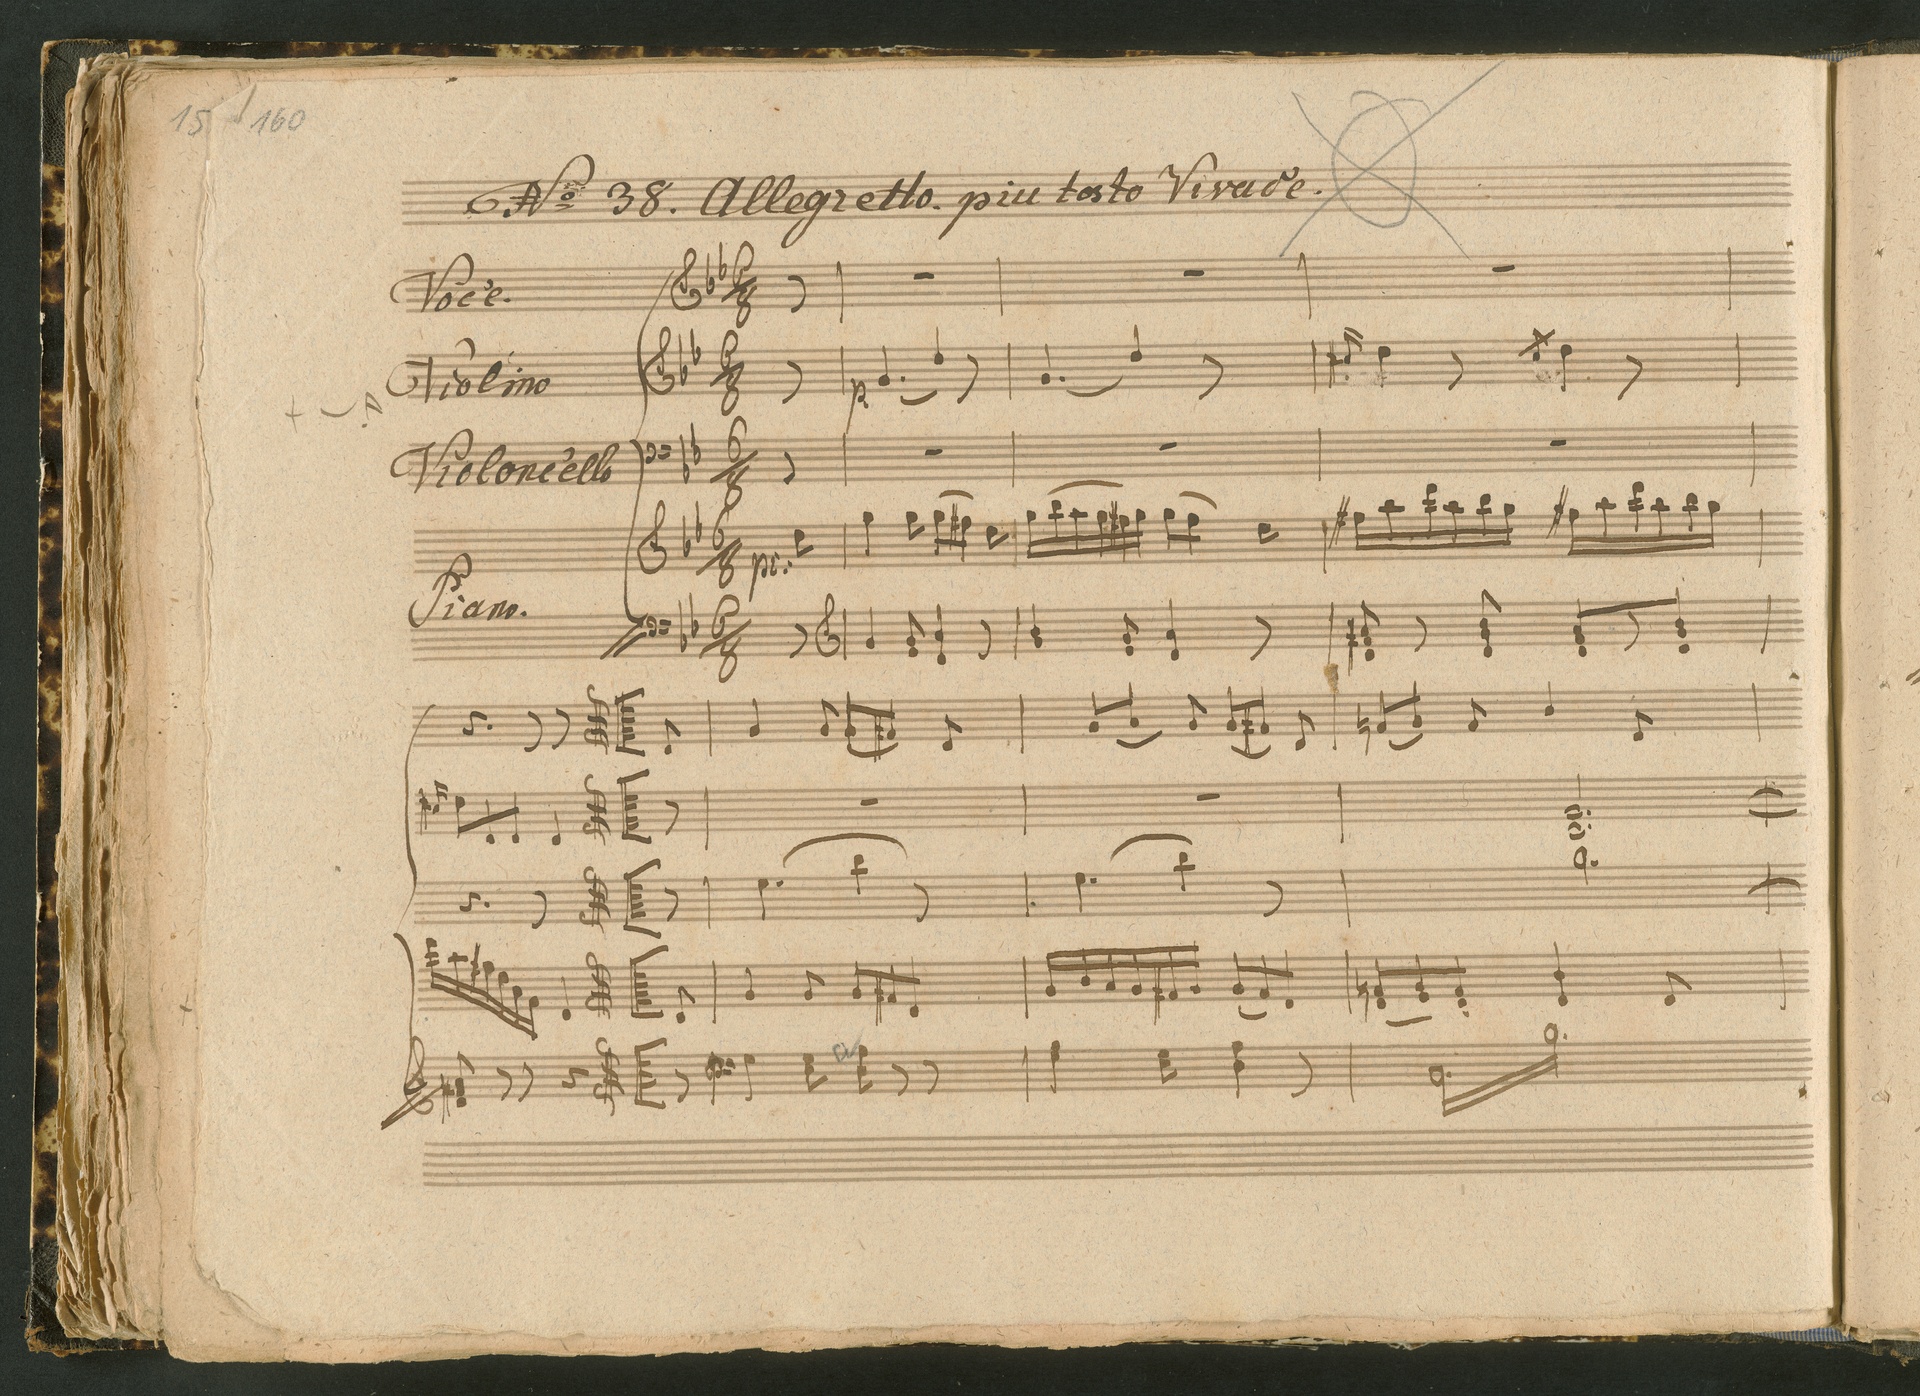 15 160
No 38. Allegretto. piu tosto Vivace.
Voce.
6 8
Violino
6 8
p.
Violoncello
6 8
6 8
pi:
Piano.
6 8